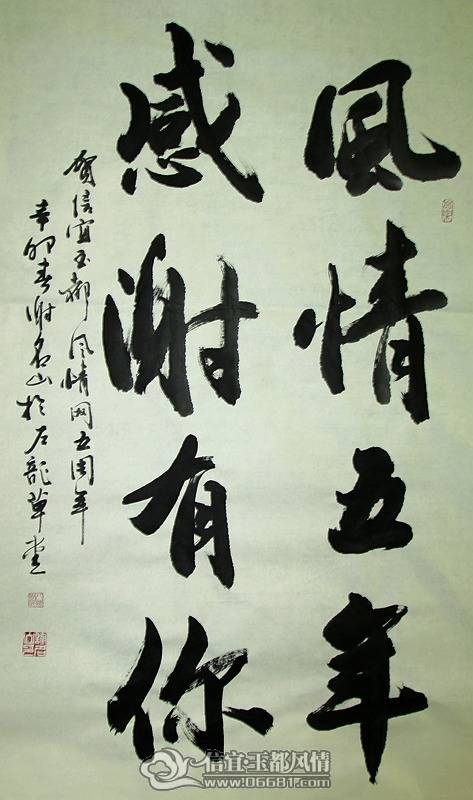 風情五年
感谢有你
贺信宜玉都风情网五周年
辛卯春谢名山於石龍草堂
信宜·玉都风情
www.06681.com